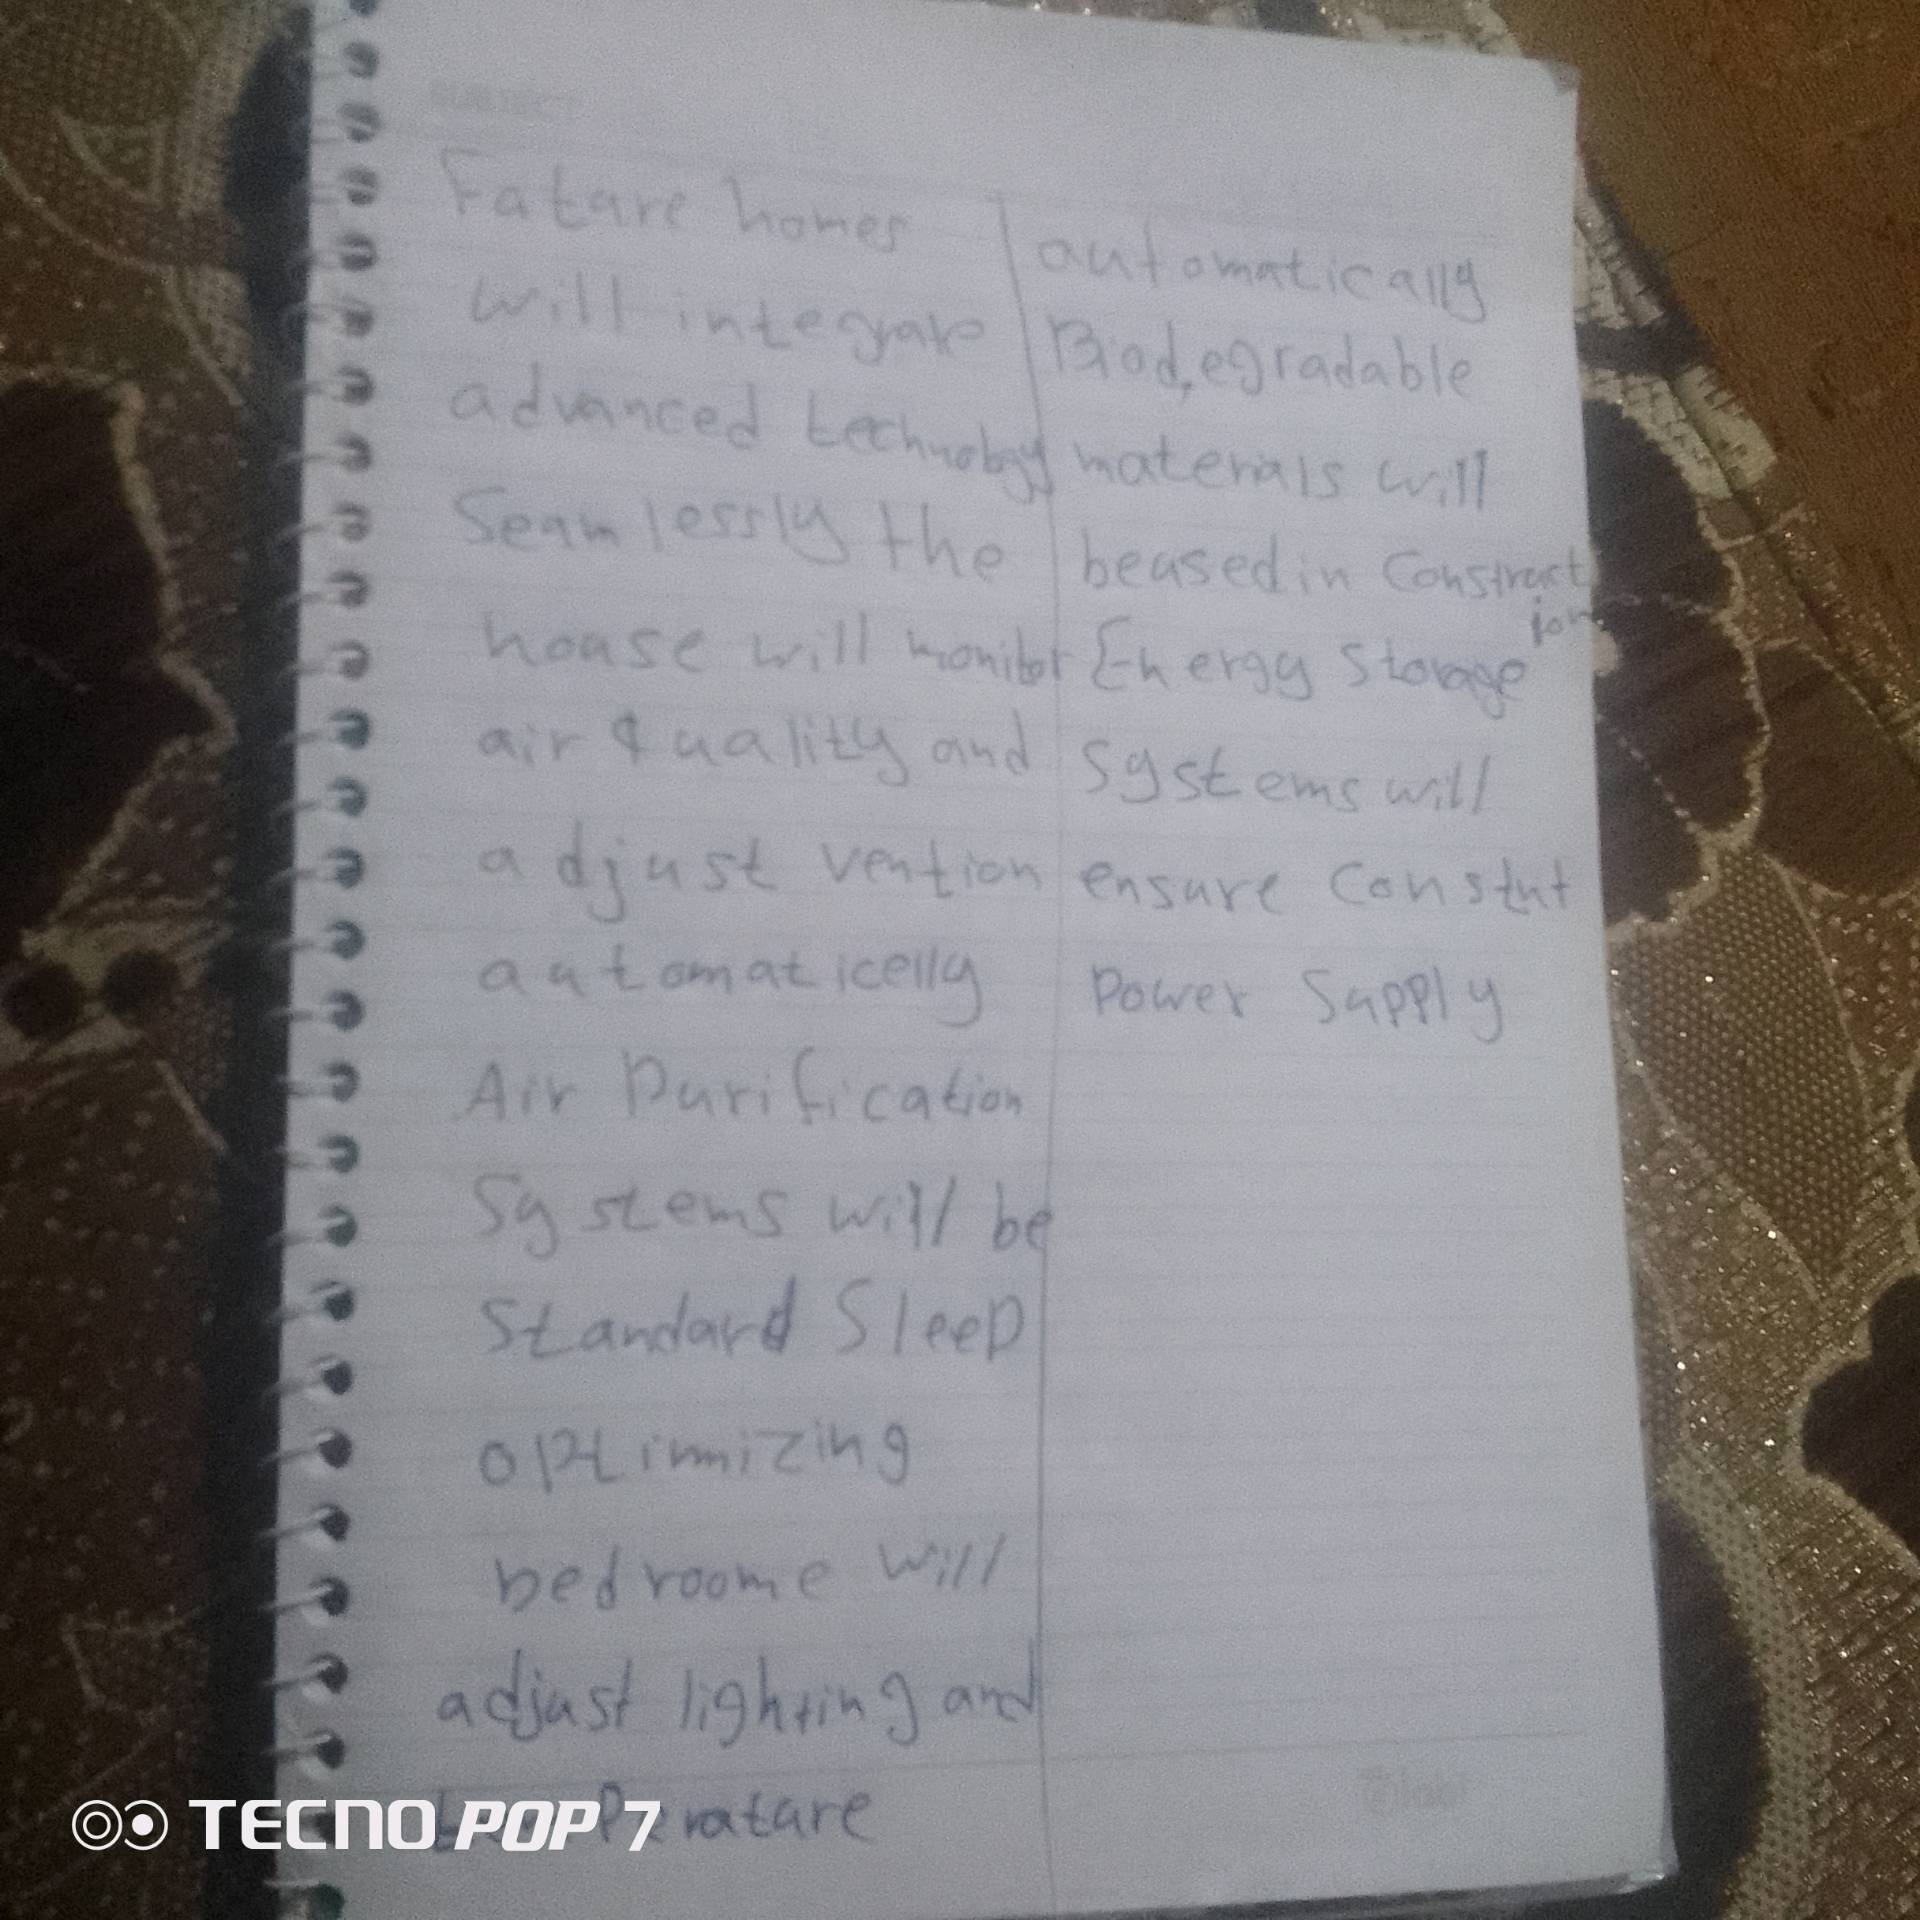 SUBJECT
Fatare homes
will integrate
advanced technology
Seamlessly the
hoase will monitor
air quality and
adjust vention
automaticelly
Air Purification
Systems will be
Standard Sleep
optimizing
bedroome will
adjust lighting and
temPeratare
automatically
Biodegradable
materials will
beased in Construct
ion
Energy Storage
Systems will
ensure Constnt
Power Sapply
TECNO POP 7